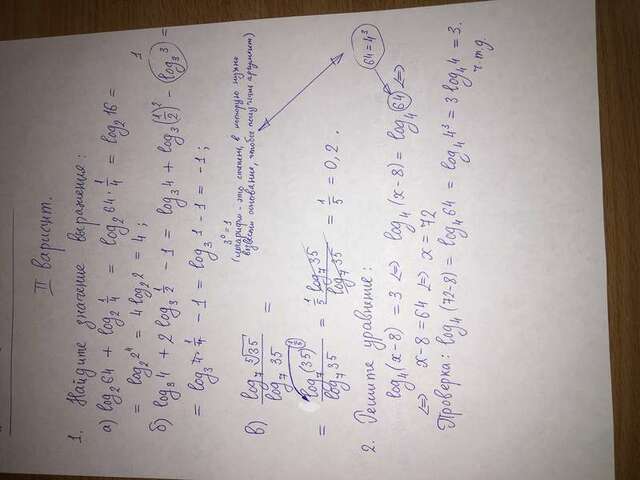 II вариант.
1. Найдите значение выражения:
а) log₂64 + log₂ 1/4 = log₂ 64 · 1/4 = log₂16 =
= log₂2⁴ = 4 log₂2 = 4 ;
1
б) log₃4 + 2 log₃ 1/2 - 1 = log₃4 + log₃(1/2)² - log₃3 =
= log₃ 4 · 1/4 - 1 = log₃1 - 1 = -1 ;
3⁰ = 1
(логарифм - это степень, в которую нужно
возвести основание, чтобы получить аргумент)
в) log₇ ⁵√35 / log₇ 35 =
= log₇(35)^(1/5) / log₇35 = 1/5 log₇35 / log₇35 = 1/5 = 0,2 .
2. Решите уравнение:
64 = 4³
log₄(x-8) = 3 ⇔ log₄(x-8) = log₄64 ⇔
⇔ x-8 = 64 ⇔ x = 72
Проверка: log₄(72-8) = log₄64 = log₄4³ = 3 log₄4 = 3.
ч.т.д.